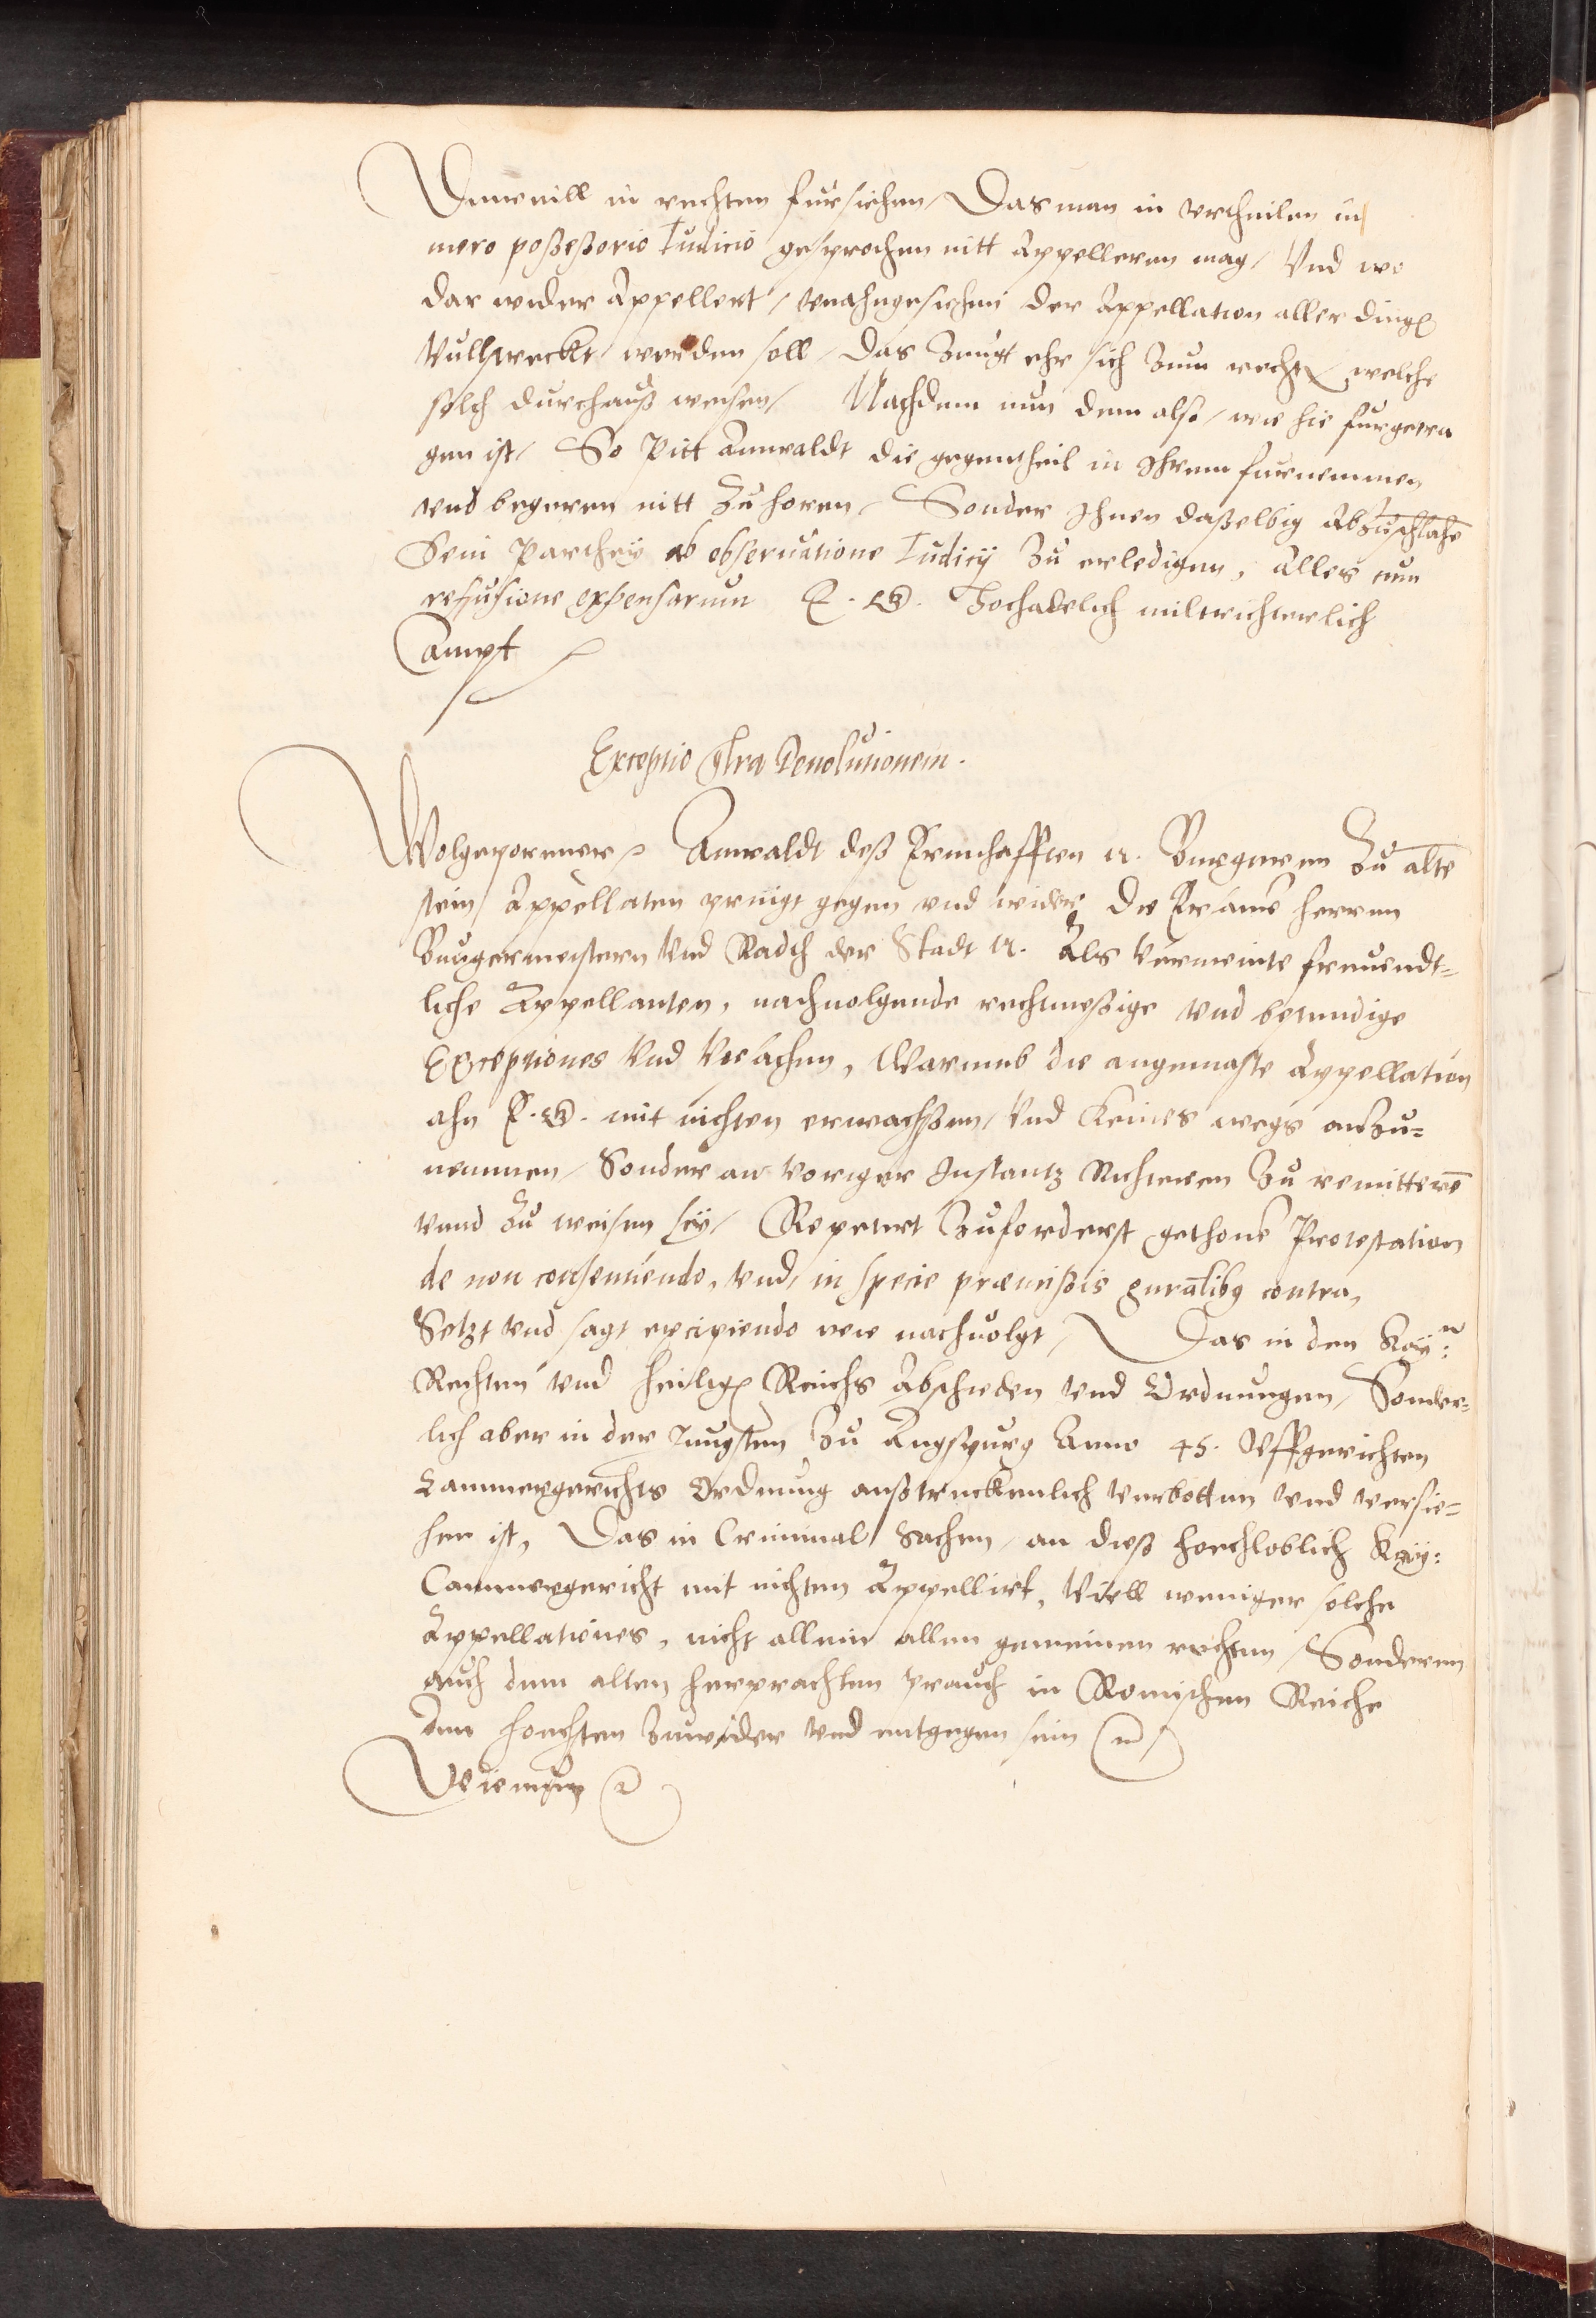 Dieweill in rechten fursichen, Das man in vrtheilen in
mero poßeßorio Iudicio gesprochen nitt Appelleren mag, Vnd wo
dar wider Appellert, vnahngesichen der Appellation aller dings
Vullstreckt werden soll, Das Zeugt ehr sich Zum rechten, welche
solch durchauß weisen, Nachdem nun dem also, wie hie furgetra
gen ist, So Pitt Anwaldt die gegentheil in Ihrem furnemmen
vnd begeren nitt Zu horen, Sonder Ihnen daßelbig Abzuschlahē
Sein Parthey ab obseruatione Iudicij Zu erledigen, Alles cum
refusione expensarum E. G. Hochadelich miltrichterlich
Ampt
Exceptio Contra Deuolutionem.
Wolgeporener Anwaldt deß Ernhafften N. Burgeren Zu alte
stein Appellaten zeuigt gegen vnd wider die Ersame herren
Burgermeistern Vnd Radth der Stadt N. Als Vermeinte freuendt=
liche Appellanten, nachuolgende rechtmeßige vnd bestendige
Exceptiones Vnd Vrsachen, Warumb die angemaste Appellation
ahn E. G. mit nichten erwachßen, Vnd Keines wegs anZu=
nemmen, Sonder an Voriger Instantz Richteren Zu remitterē
vnnd Zu weisen sey, Repetert Zuforderst gethone Protestation
de non consentiendo, Vnd, in specie præmißis gn̄ralibꝰ contra,
Setzt vnd sagt excipiendo wie nachuolgt, Das in den Kay:n
Rechten vnd heiligen Reichs Abschieden vnd Ordnungen, Sonder=
lich aber in der Jungsten Zu Augspurg Anno 45. Vffgerichten
Cammergerichts Ordnung außtruckenlich Verbotten vnd versie=
hen ist, Das in Criminal Sachen, an dieß hochloblich Kay:
Cammergericht mit nichten Appellirt, Viell weniger solche
Appellationes, nicht allein allen gemeinen rechten, Sonderen
auch dem alten herprachten prauch in Romischen Reiche
dem hochsten Zuwider vnd entgegen sein